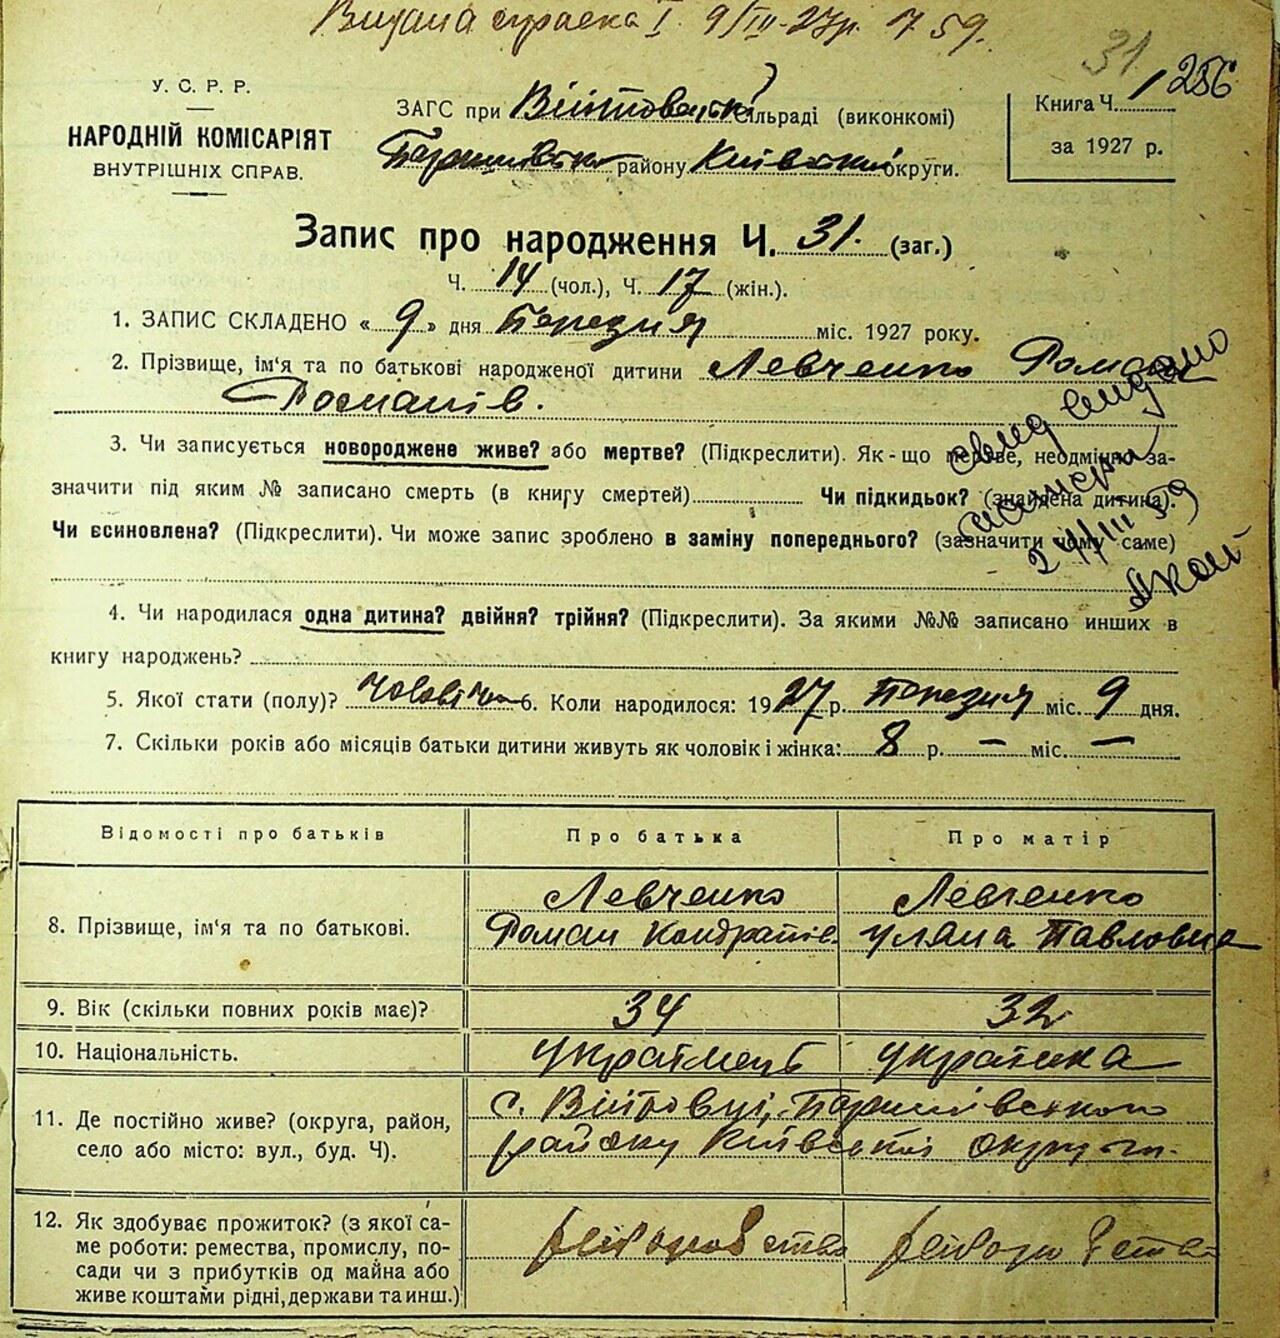 Видана справка І. 9/ІІІ-27р. № 59.
31 256
У. С. Р. Р.
НАРОДНІЙ КОМІСАРІЯТ
ВНУТРІШНІХ СПРАВ.
ЗАГС при Війтовецькій сільраді (виконкомі)
Баришівсько району Київської округи.
Книга Ч. 1
за 1927 р.
Запис про народження Ч. 31. (заг.)
Ч. 14 (чол.), Ч. 17 (жін.).
1. ЗАПИС СКЛАДЕНО « 9 » дня Березня міс. 1927 року.
2. Прізвище, ім'я та по батькові народженої дитини Левченко Роман
Романів.
3. Чи записується новороджене живе? або мертве? (Підкреслити). Як-що мертве, неодмінно за-
значити під яким № записано смерть (в книгу смертей) Чи підкидьок? (знайдена дитина).
Чи всиновлена? (Підкреслити). Чи може запис зроблено в заміну попереднього? (зазначити чому саме)
свид видано
24/ІІІ 59
4. Чи народилася одна дитина? двійня? трійня? (Підкреслити). За якими №№ записано инших в
книгу народжень?
5. Якої стати (полу)? чоловіча 6. Коли народилося: 1927 р. Березня міс. 9 дня.
7. Скільки років або місяців батьки дитини живуть як чоловік і жінка: 8 р. — міс. —
Відомості про батьків Про батька Про матір
8. Прізвище, ім'я та по батькові. Левченко Левченко
Роман Кондратів Уляна Павловна
9. Вік (скільки повних років має)? 34 32
10. Національність. українець українка
11. Де постійно живе? (округа, район,
село або місто: вул., буд. Ч).
с. Війтовці, Баришівського
району Київської округи.
12. Як здобуває прожиток? (з якої са-
ме роботи: ремества, промислу, по-
сади чи з прибутків од майна або
живе коштами рідні, держави та инш.)
хліборобство хліборобство